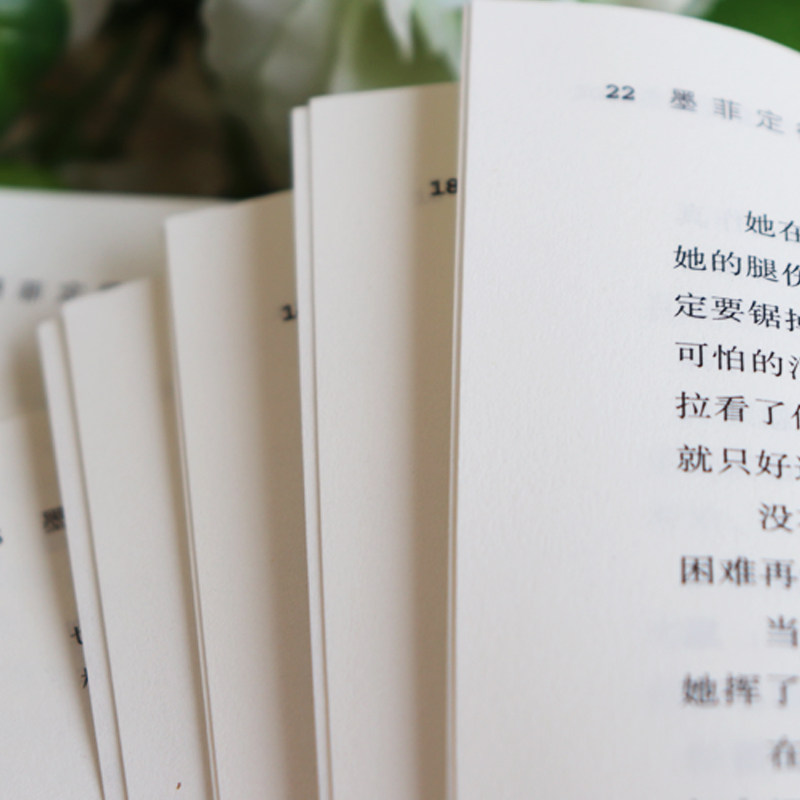 22 墨菲定
18
她在
她的腿伤
定要锯掉
可怕的消
拉看了
就只好
没
困难再
当
她挥了
在
墨